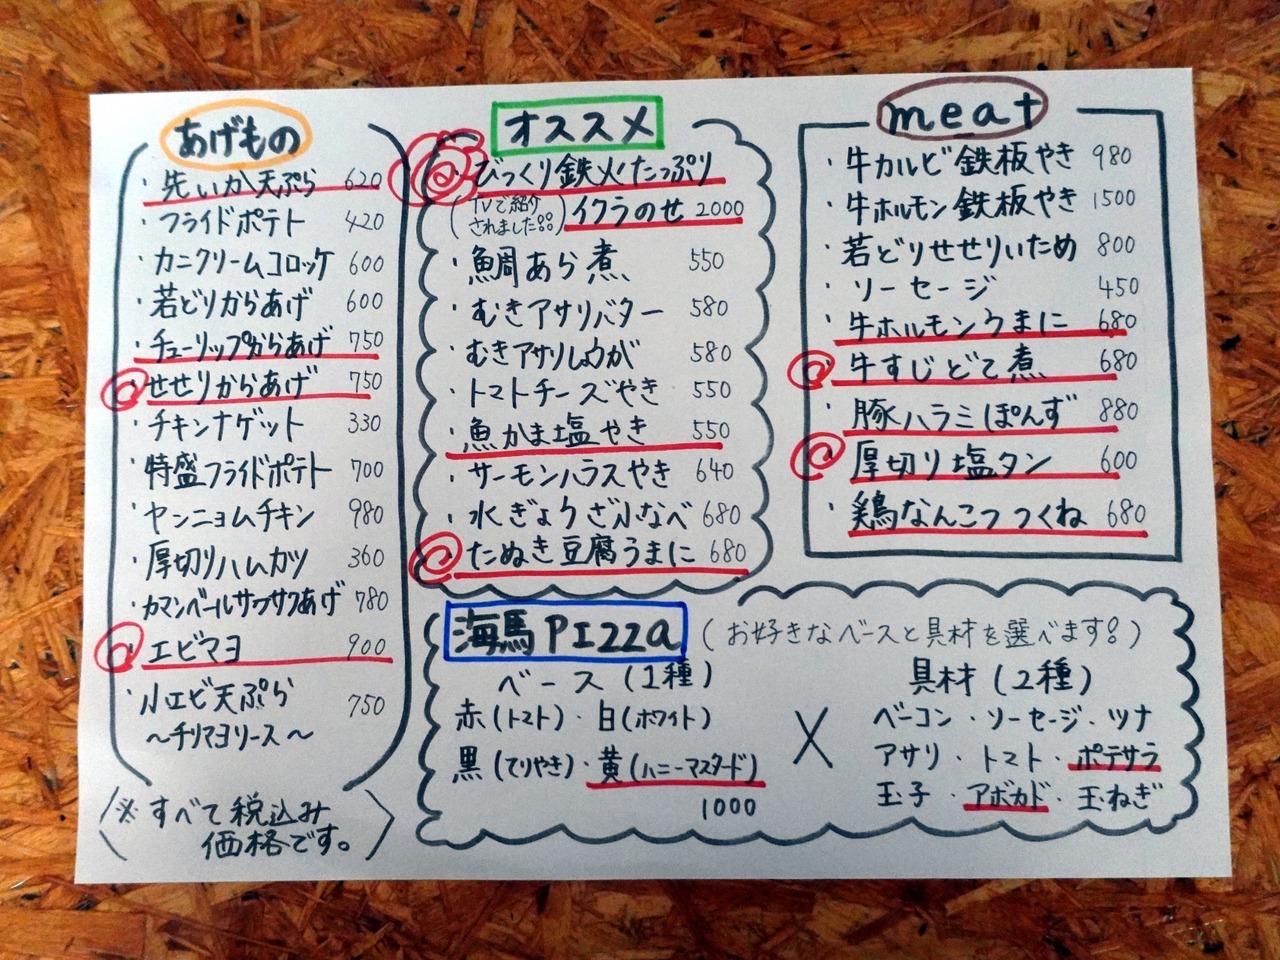 あげもの
・先いか天ぷら 620
・フライドポテト 420
・カニクリームコロッケ 600
・若どりからあげ 600
・チューリップからあげ 750
・せせりからあげ 750
・チキンナゲット 330
・特盛フライドポテト 700
・ヤンニョムチキン 980
・厚切りハムカツ 360
・カマンベールサクサクあげ 780
・エビマヨ 900
・小エビ天ぷら 750
～チリマヨソース～
※すべて税込み
価格です。
オススメ
・びっくり鉄火たっぷり
(TVで紹介されました!!)イクラのせ 2000
・鯛あら煮 550
・むきアサリバター 580
・むきアサリしょうが 580
・トマトチーズやき 550
・魚かま塩やき 550
・サーモンハラスやき 640
・水ぎょうざふなべ 680
・たぬき豆腐うまに 680
meat
・牛カルビ鉄板やき 980
・牛ホルモン鉄板やき 1500
・若どりせせりいため 800
・ソーセージ 450
・牛ホルモンうまに 680
・牛すじどて煮 680
・豚ハラミぽんず 880
・厚切り塩タン 600
・鶏なんこつつくね 680
海馬PIZZA (お好きなベースと具材を選べます!)
ベース(1種)
赤(トマト)・白(ホワイト)
黒(てりやき)・黄(ハニーマスタード)
1000
×
具材(2種)
ベーコン・ソーセージ・ツナ
アサリ・トマト・ポテサラ
玉子・アボカド・玉ねぎ